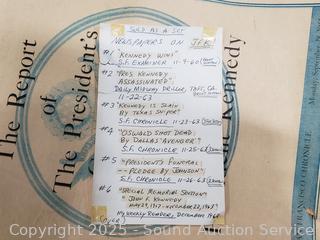 SOLD AS A SET
NEWSPAPERS ON JFK:
#1 "KENNEDY WINS"
S.F. EXAMINER 11-9-60
#2 "PRES. KENNEDY
ASSASSINATED"
DAILY MIDWAY DRILLER, TAFT, CA.
11-22-63
#3 "KENNEDY IS SLAIN
BY TEXAS SNIPER"
S.F. CHRONICLE 11-23-63
#4 "OSWALD SHOT DEAD
BY DALLAS 'AVENGER'"
S.F. CHRONICLE 11-25-63
#5 "PRESIDENT'S FUNERAL
-- PLEDGE BY JOHNSON"
S.F. CHRONICLE 11-26-63
#6 "SPECIAL MEMORIAL SECTION"
"JOHN F. KENNEDY
MAY 29, 1917 - NOVEMBER 22, 1963"
MY WEEKLY READER, DECEMBER
The Report
of
The President's
Kennedy
CHRONICLE
Copyright 2025 - Sound Auction Service